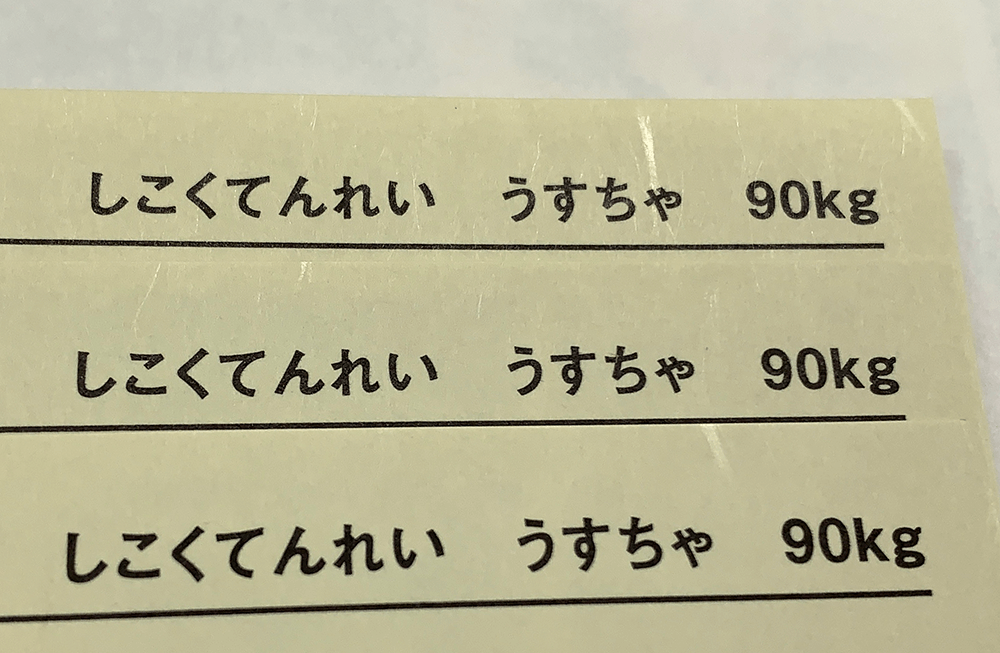 しこくてんれい　うすちゃ　90kg
しこくてんれい　うすちゃ　90kg
しこくてんれい　うすちゃ　90kg